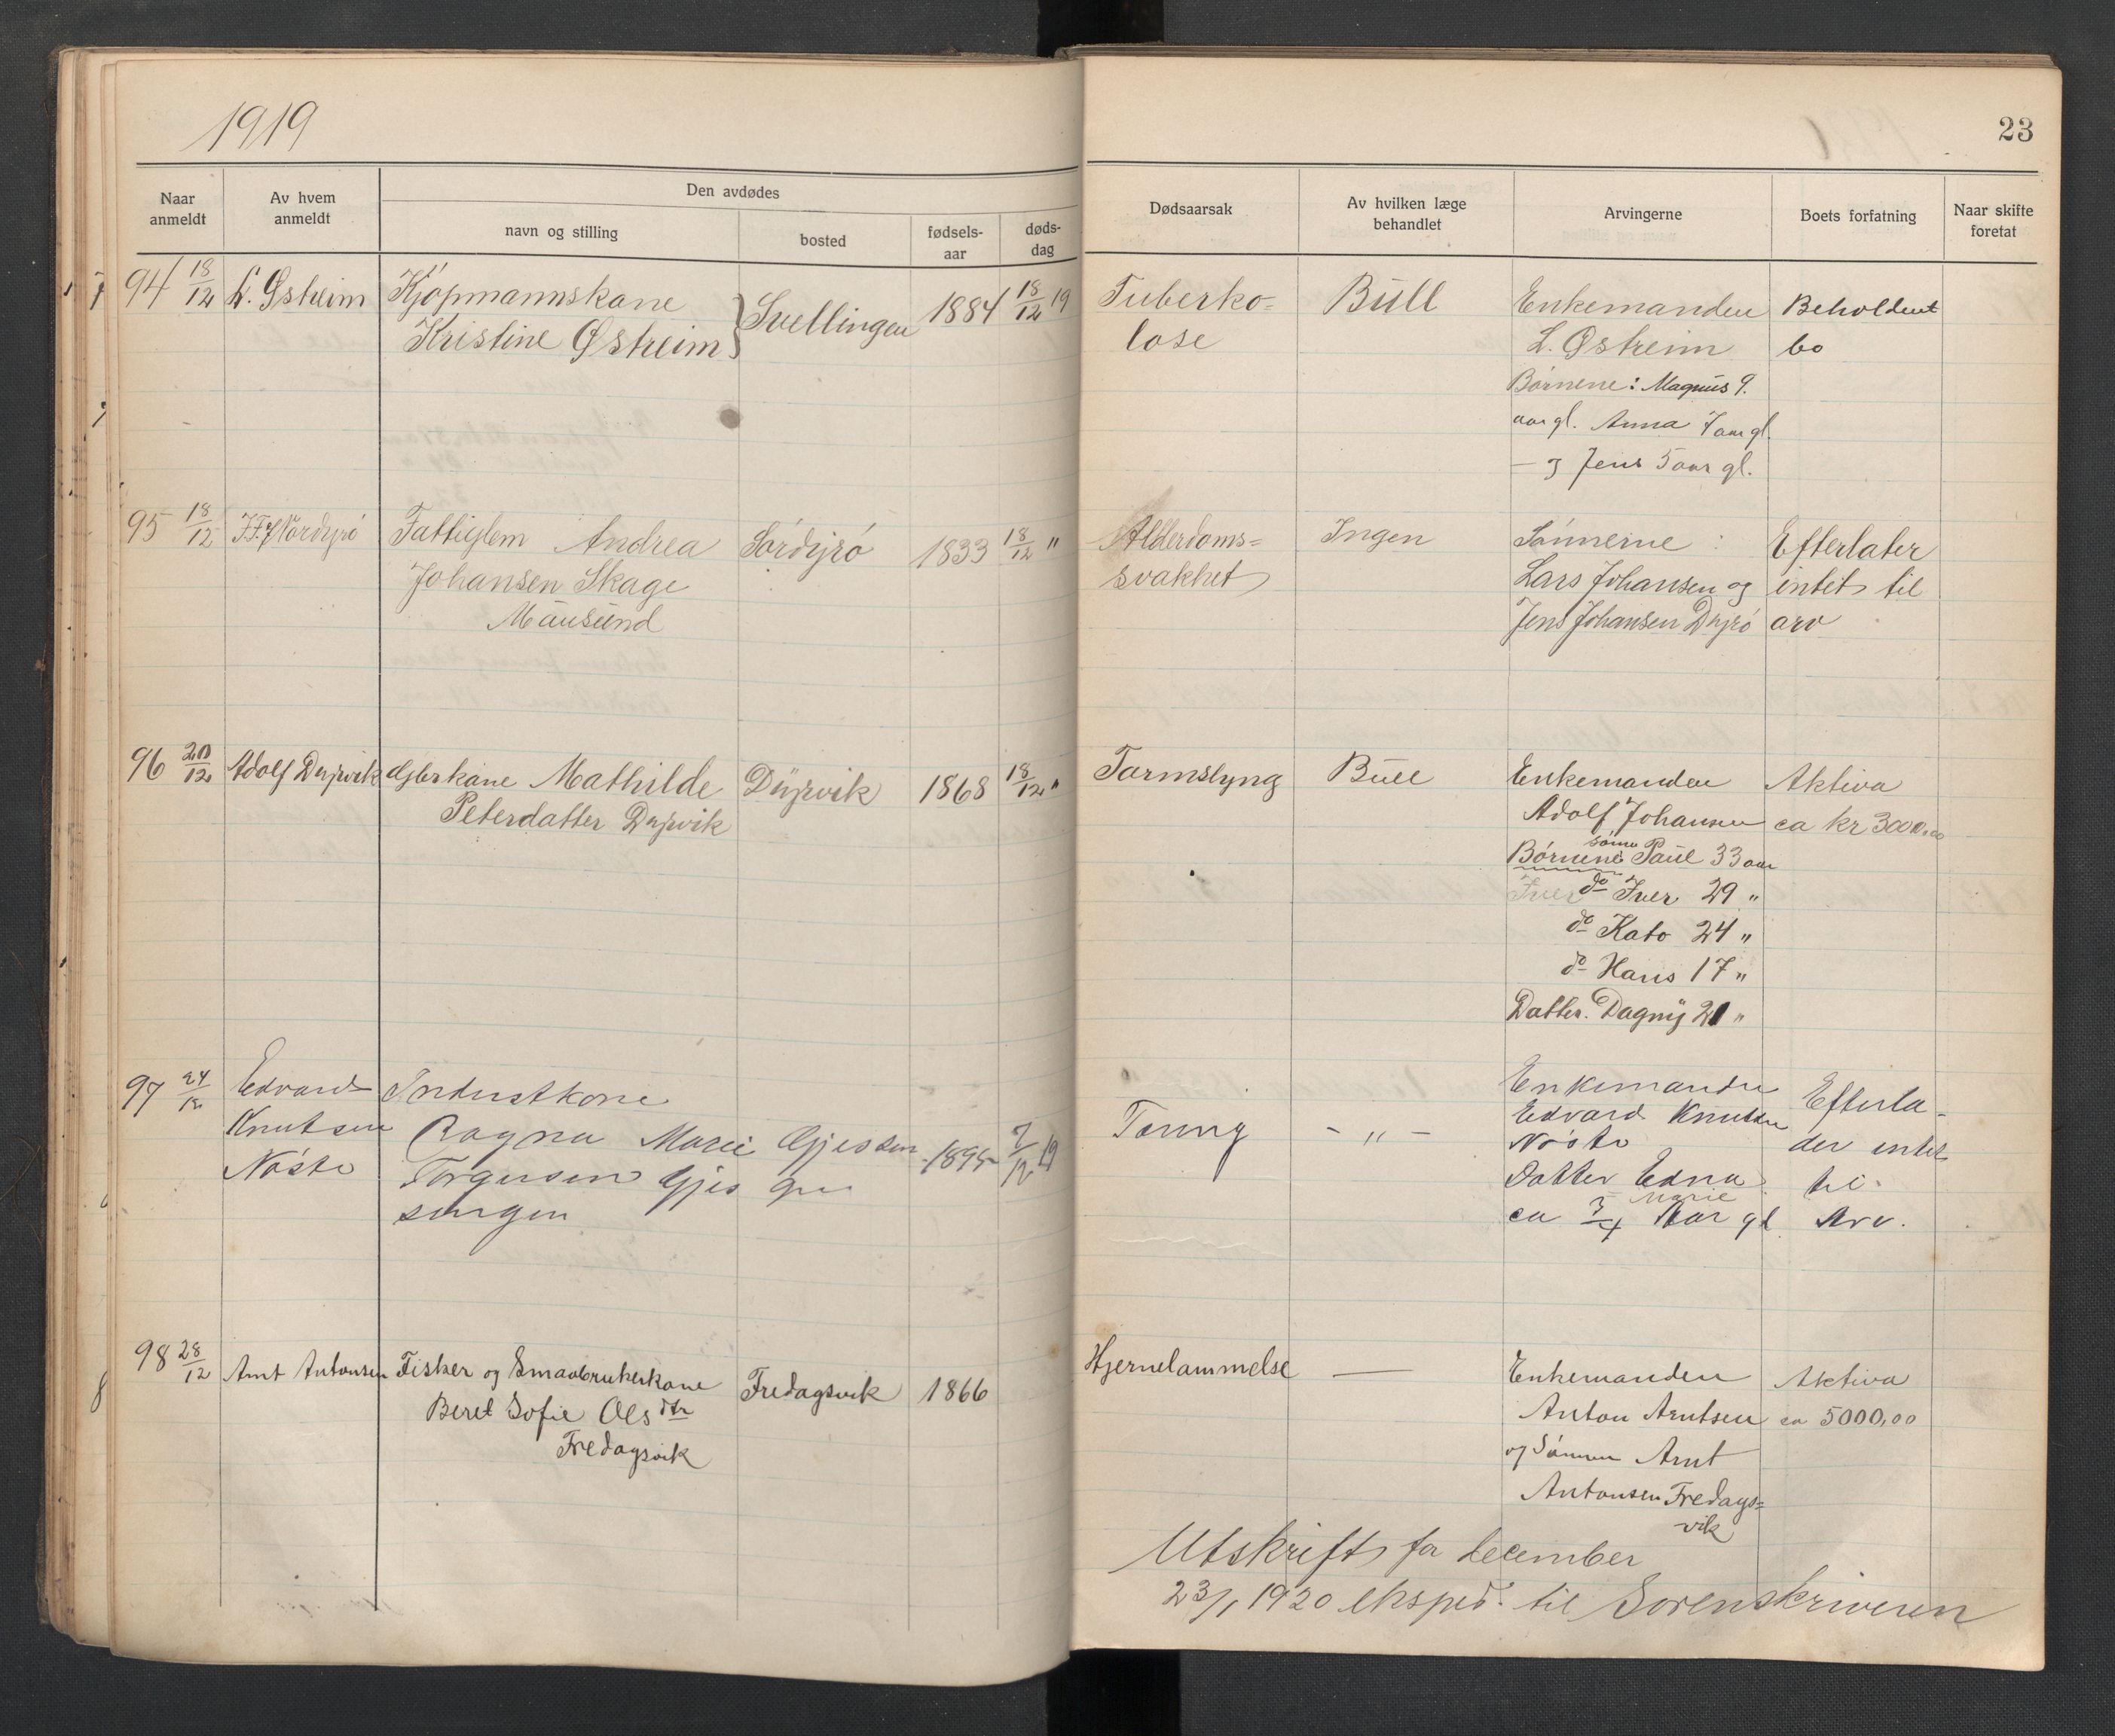 1919
23
Naar anmeldt
Av hvem anmeldt
Den avdødes
navn og stilling
bosted
fødsels-aar
døds-dag
Dødsaarsak
Av hvilken læge behandlet
Arvingerne
Boets forfatning
Naar skifte foretat
94 18/12 L. Østreim Kjøpmannskone Svellingen 1884 18/12 19 Tuberko= Bull Enkemanden Beholdent
Kristine Østreim løse L. Østreim bo
Børnene: Magnus 9.
aar gl. Anna 7 aar gl.
– og Jens 5 aar gl.
95 18/12 Nordyrø Fattiglem Andrea Sørdyrø 1833 18/12 " Alderdoms= Ingen Sønnerne : Efterlater
Johansen Skage svakhet Lars Johansen og intet til
Mausund Jens Johansen Dyrø arv
96 20/12 Adolf Dyrvik Mathilde Dyrvik 1868 18/12 " Tarmslyng Bull Enkemanden Aktiva
Petersdatter Dyrvik Adolf Johansen ca kr 3000,00
sønn
Børnene: Paul 33 aar
Iver do Iver 29 "
do Kato 24 "
do Hans 17 "
Datter. Dagny 21 "
97 24/12 Edvard Enkemanden
Knutsen Ragna Marie 1895 7/12 19 Tæring – " – Edvard Knutsen Efterla-
Nøste Torgersen Nøste der intet
Datter Edna til
Marie
ca 3/4 Aar gl. Arv.
98 28/12 Arnt Antonsen Fisker og Smaabrukerkone Fredagsvik 1866 Hjernelammelse — Enkemanden Aktiva
Beret Sofie Ols dtr Anton Arntsen ca 5000,00
Fredagsvik og Sønnen Arnt
Antonsen Fredags=
vik
Utskrift for december
23/1 1920 eksped. til Sorenskriveren